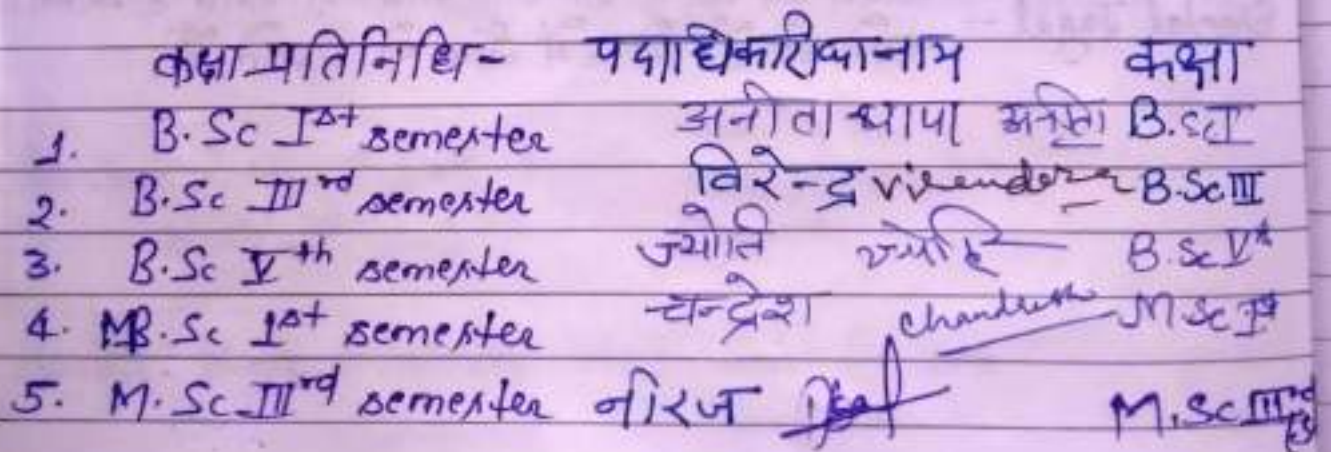 कक्षा प्रतिनिधि- पदाधिकारी का नाम कक्षा
1. B.Sc Ist semester अनीता थापा अनीता B.Sc I
2. B.Sc IIIrd semester विरेन्द्र Virendera B.Sc III
3. B.Sc Vth semester ज्योति ज्योति B.Sc Vth
4. M.Sc Ist semester चन्द्रेश Chandresh M.Sc Ist
5. M.Sc IIIrd semester नीरज M.Sc IIIrd